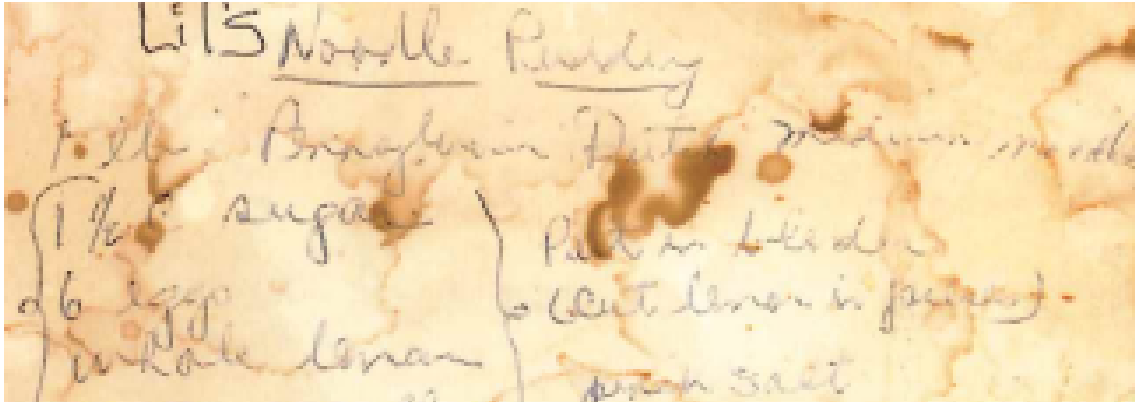 Lil's Noodle Pudding
1 lb. Pennsylvania Dutch medium noodles
sugar
6 eggs
whole lemon
Put in blender
(cut lemon in pieces)
pinch salt